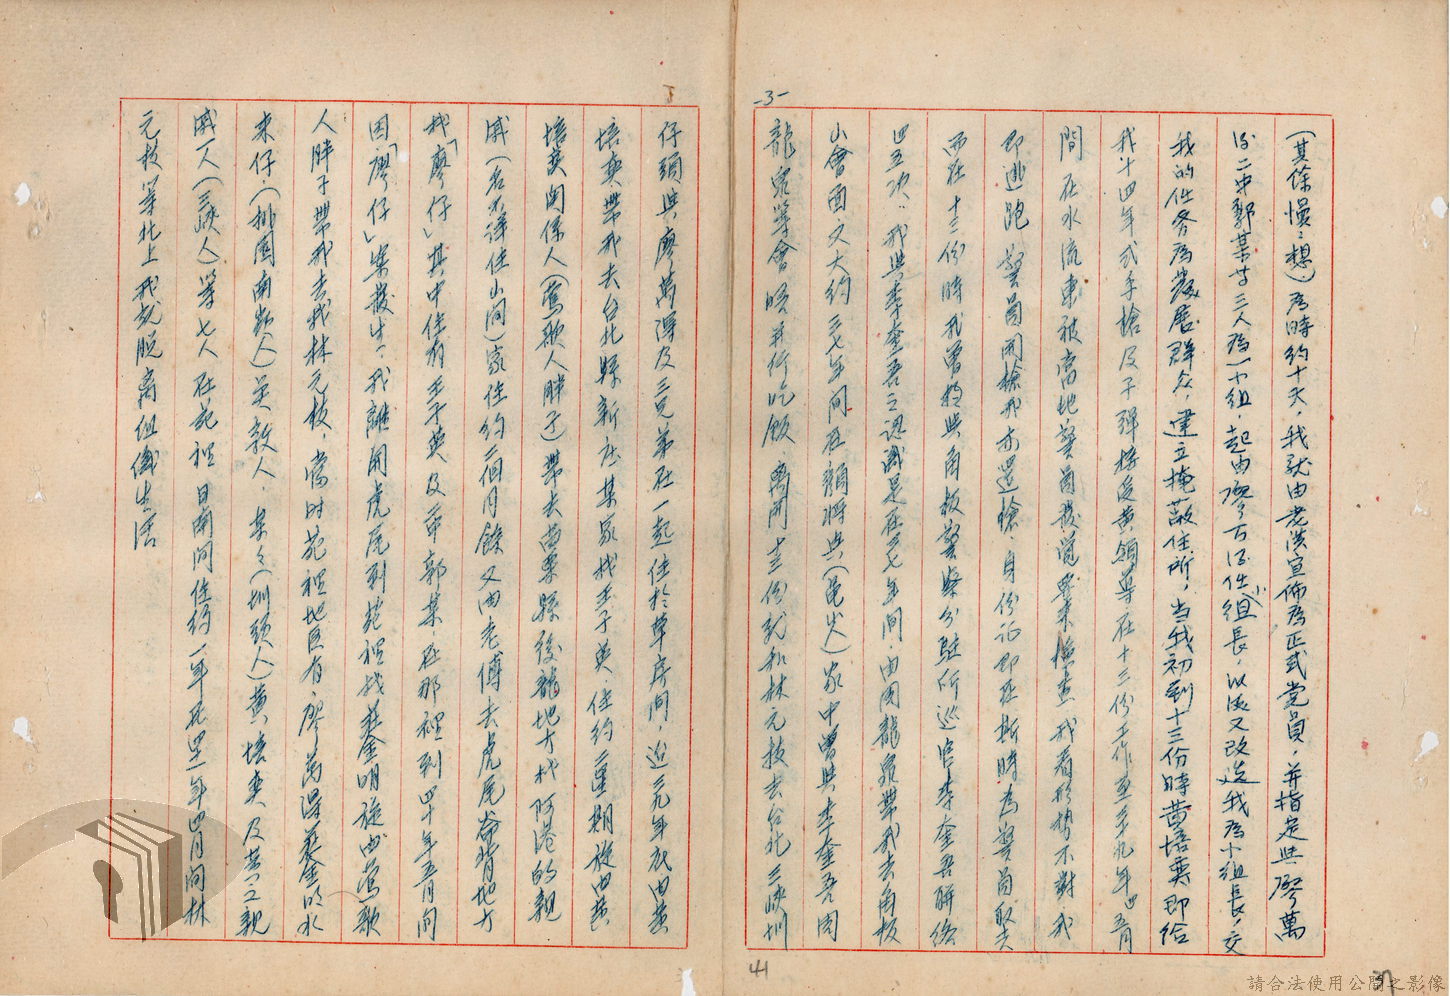 -3-
(其餘慢慢想)為時約十天,我就由老洪宣佈為正式党員,并指定與廖萬
得二中郭某等三人為一小組,起由廖万得任小組長,以後又改造我為小組長,交
我的任務為發展群众,建立掩蔽住所,当我初到十三份時黄培奕即給
我廿四年式手槍及子彈接受黄領導在十三份工作至三十九年四、五月
間在水流東被高地警員發覺要來檢查,我看形勢不對我
即逃跑警員開槍我亦還槍,身份記即在斯時為警員取去
而在十三份時我曾特與角板警察分駐所巡官李奎吾聯絡
四五次,我與李奎吾之認識是在三七年間,由周龍泉帶我去角板
山會面又大約三七年間在頭將與(黾尖人)家中曾與李奎吾周
龍泉等會晤并行吃飯,离開十三份就和林元枝去台北三峽圳
仔頭與廖萬得及三兄弟在一起住於草房間,迄三九年底由黄
培奕帶我去台北縣新庄某家找李子英,住約二星期旋由黄
培奕関係人(鶯歌人胖子)帶去苗栗縣後龍地方找阿港的親
戚(名不詳住山间)家住約二個月餘又由老傅去虎尾崙背地方
找「廖仔」其中住有王子英及弟郭某,在那裡到四十年五月间
因「廖仔」案發生,我離開虎尾到苑裡找蔡金明旋由鶯歌
人胖子帶我去找林元枝,當時苑裡地區有,廖萬得蔡金明水
來仔,(桃園南崁人)吳敦人,李々(圳頭人)黄培奕及其之親
戚一人(三峽人)等七人在苑裡日南间住約一年死四一年四月间林
元枝等北上我就脱离组織生活
41
37
請合法使用公開之影像